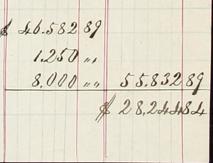 $ 46.582 89
1.250 〃
8.000 〃〃 55.832 89
$ 28,244 84